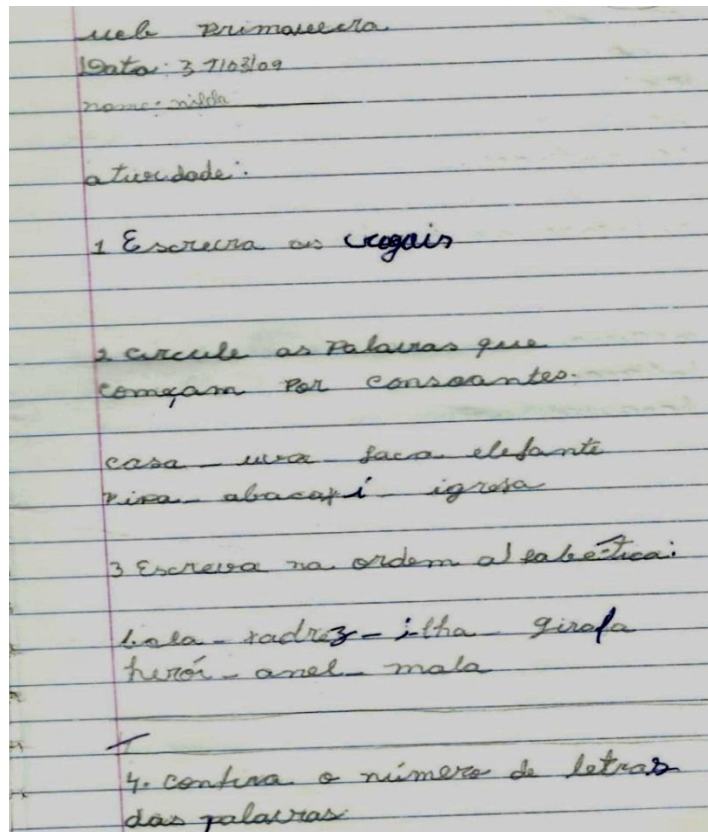 ueb Primavera
Data: 31/03/09
nome: nilda
atividade:
1 Escreva as vogais
2 circule as Palavras que
começam Por consoantes.
casa - uva - faca elefante
Pipa - abacaxi - igreja
3 Escreva na ordem alfabética:
bola - xadrez - ilha - girafa
herói - anel - mala
4. confira o número de letras
das palavras.